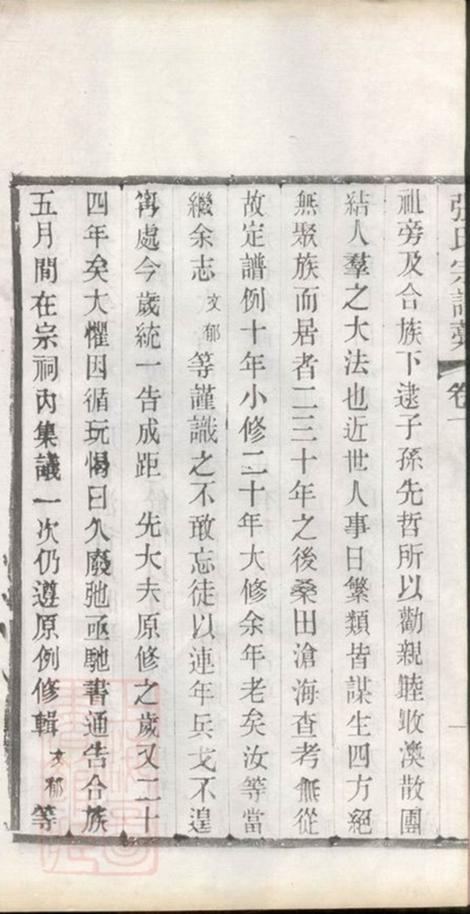 張氏宗譜 卷一
祖旁及合族下逮子孫先哲所以勸親睦收渙散團
結人羣之大法也近世人事日繁類皆謀生四方絕
無聚族而居者二三十年之後桑田滄海查考無從
故定譜例十年小修二十年大修余年老矣汝等當
繼余志文郁等謹識之不敢忘徒以連年兵戈不遑
寗處今歲統一告成距 先大夫原修之歲又二十
四年矣大懼因循玩愒日久廢弛亟馳書通告合族
五月間在宗祠內集議一次仍遵原例修輯文郁等